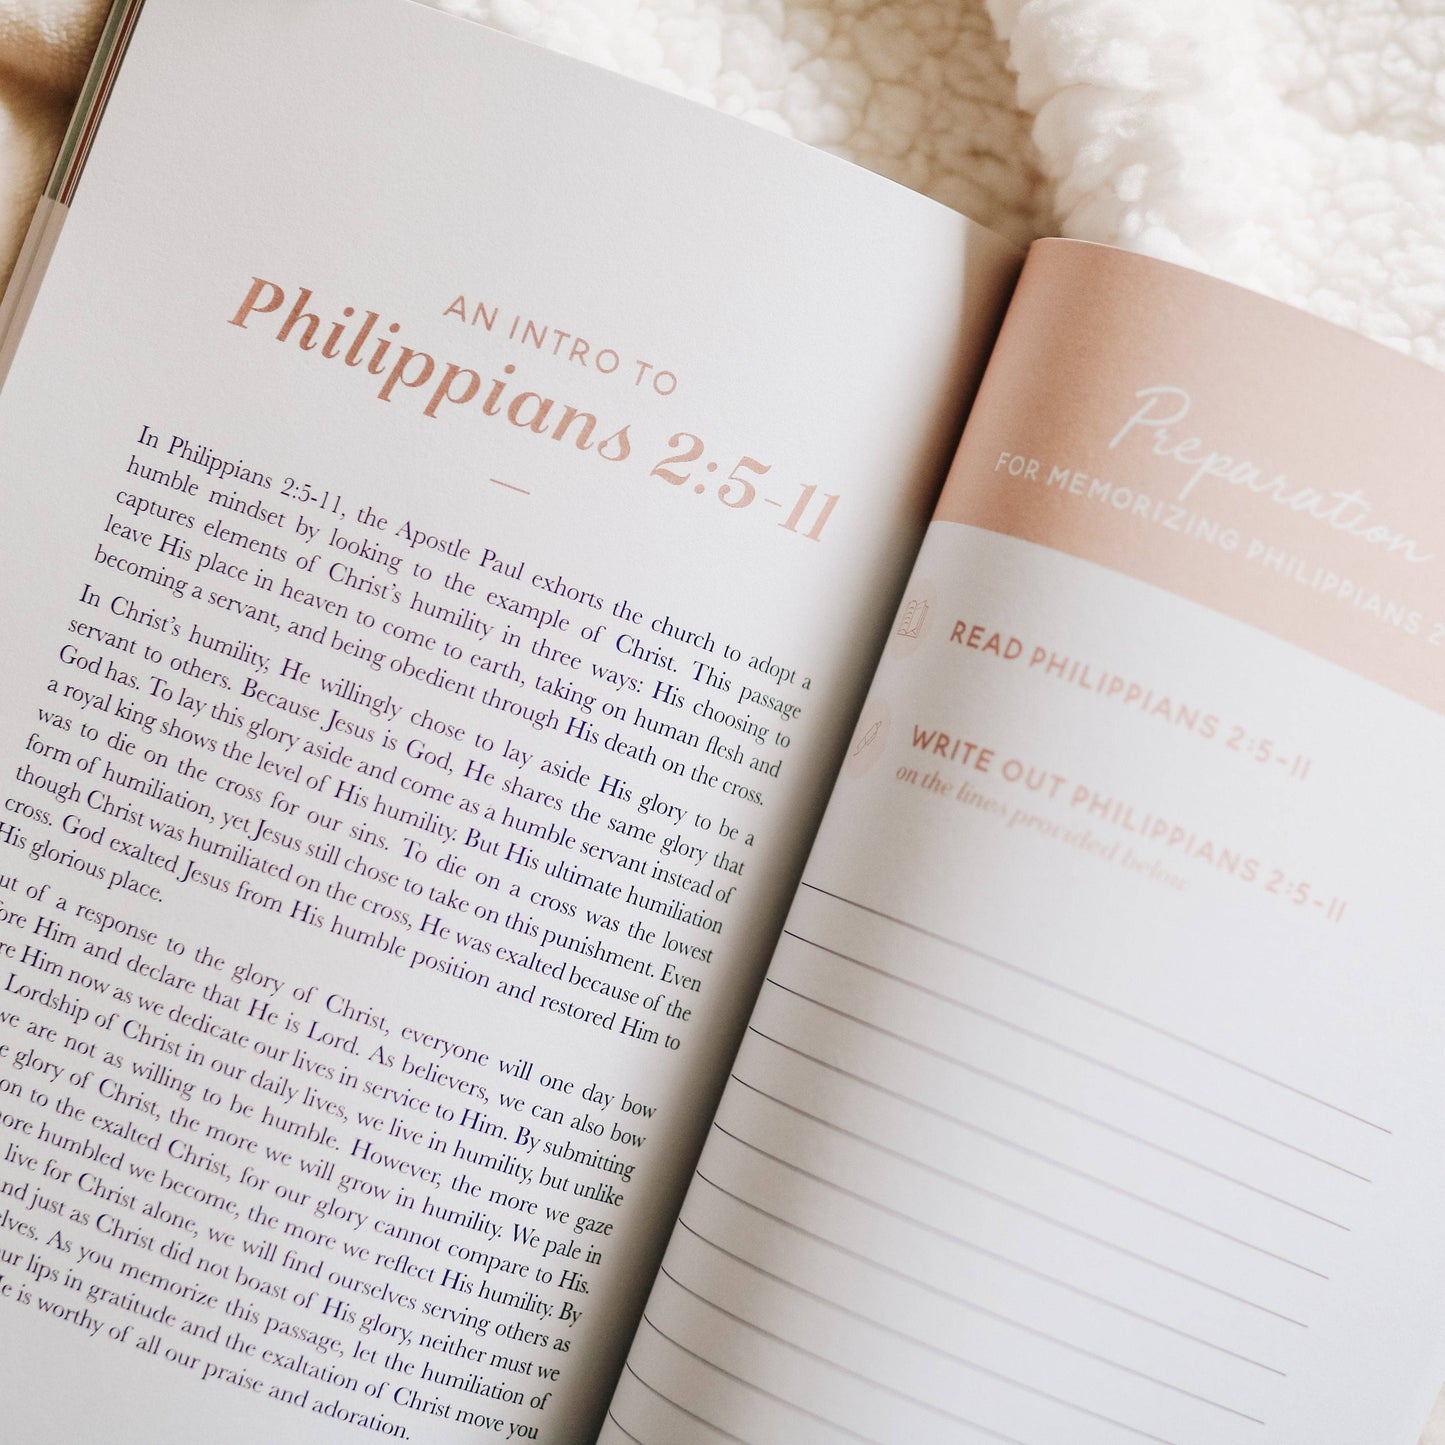 AN INTRO TO
Philippians 2:5-11
In Philippians 2:5-11, the Apostle Paul exhorts the church to adopt a
humble mindset by looking to the example of Christ. This passage
captures elements of Christ's humility in three ways: His choosing to
leave His place in heaven to come to earth, taking on human flesh and
becoming a servant, and being obedient through His death on the cross.
In Christ's humility, He willingly chose to lay aside His glory to be a
servant to others. Because Jesus is God, He shares the same glory that
God has. To lay this glory aside and come as a humble servant instead of
a royal king shows the level of His humility. But His ultimate humiliation
was to die on the cross for our sins. To die on a cross was the lowest
form of humiliation, yet Jesus still chose to take on this punishment. Even
though Christ was humiliated on the cross, He was exalted because of the
cross. God exalted Jesus from His humble position and restored Him to
His glorious place.
of a response to the glory of Christ, everyone will one day bow
Him and declare that He is Lord. As believers, we can also bow
Him now as we dedicate our lives in service to Him. By submitting
Lordship of Christ in our daily lives, we live in humility, but unlike
we are not as willing to be humble. However, the more we gaze
glory of Christ, the more we will grow in humility. We pale in
to the exalted Christ, for our glory cannot compare to His.
humbled we become, the more we reflect His humility. By
live for Christ alone, we will find ourselves serving others as
just as Christ did not boast of His glory, neither must we
As you memorize this passage, let the humiliation of
lips in gratitude and the exaltation of Christ move you
is worthy of all our praise and adoration.
Preparation
FOR MEMORIZING PHILIPPIANS 2
READ PHILIPPIANS 2:5-11
WRITE OUT PHILIPPIANS 2:5-11
on the lines provided below